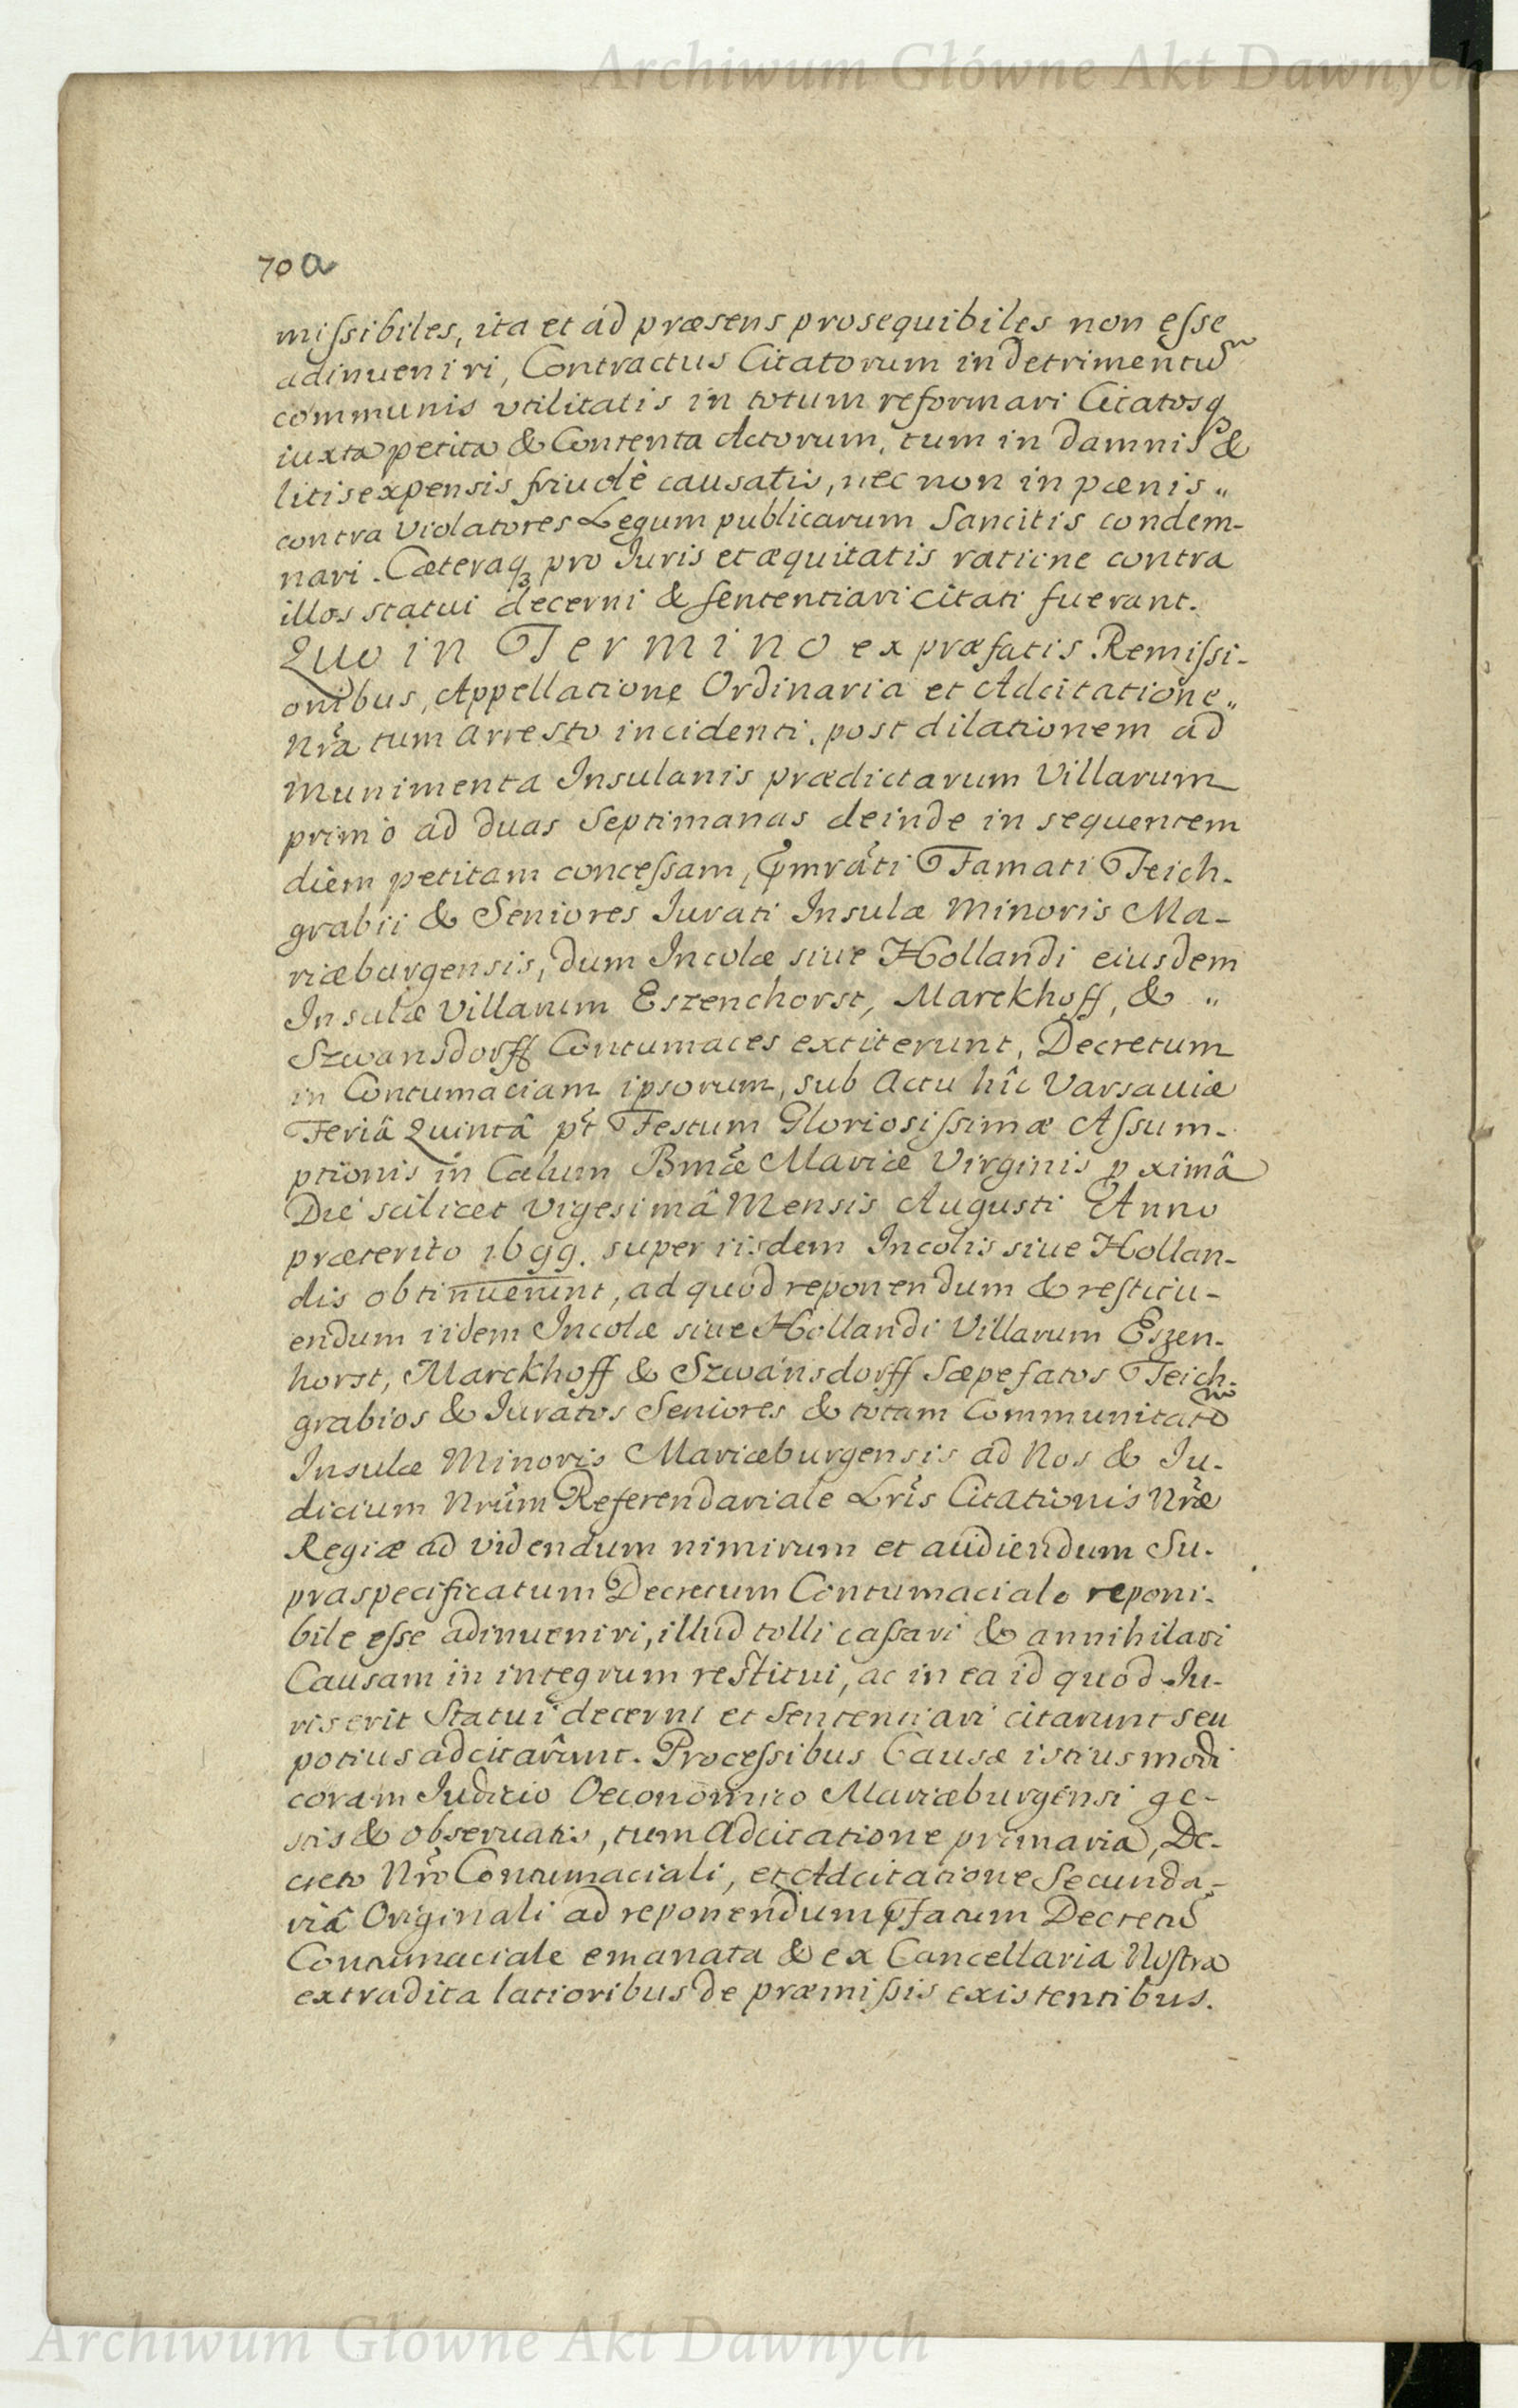 Archiwum Główne Akt Dawnych
70 a
miſsibiles, ita et ad præsens prosequibiles non eſse
adinueniri, Contractus Citatorum in detrimentũ
communis vtilitatis in totum reformari Citatosq
iuxta petita & Contenta Actorum, tum in damnis &
litis expensis friuolè causatis, nec non in pœnis „
contra violatores Legum publicarum Sancitis condem-
nari. Cæteraq₃ pro Iuris et æquitatis ratione contra
illos statui decerni & sententiari citati fuerant.
Quo in Termino ex præfatis Remiſsi-
onibus, Appellatione Ordinaria et Adcitatione „
Nrã tum arresto incidenti, post dilationem ad
Munimenta Insulanis prædictarum Villarum
primo ad duas Septimanas deinde in sequentem
diem petitam conceſsam, Famati Teich-
grabii & Seniores Iurati Insulæ Minoris Ma-
riæburgensis, dum Incolæ siue Hollandi eiusdem
Insulæ Villarum Eszenchorst, Marckhoff, & „
Szwansdorff Contumaces extiterunt, Decretum
in Contumaciam ipsorum, sub Actu hîc Varsauiæ
Feriâ Quintâ pt̃ Festum Gloriosiſsimæ Aſsum-
ptionis in Cælum Bmæ̃ Mariæ Virginis pximâ
Die scilicet vigesimâ Mensis Augusti Anno
præterito 1699. super iisdem Incolis siue Hollan-
dis obtinuerunt, ad quod reponendum & reſtitu-
endum iidem Incolæ siue Hollandi Villarum Eszen-
horst, Marckhoff & Szwansdorff Sæpefatos Teich-
grabios & Iuratos Seniores & totam Communitatẽ
Insulæ Minoris Mariæburgensis ad Nos & Iu-
dicium Nrũm Referendariale Lrĩs Citationis Nræ̃
Regiæ ad videndum nimirum et audiendum Su-
praspecificatum Decretum Contumaciale reponi-
bile eſse adinueniri, illud tolli caſsari & annihilari
Causam in integrum reſtitui, ac in ea id quod Iu-
ris erit Statui decerni et Sententiari citarunt seu
potius adcitarunt. Proceſsibus Causæ istiusmodi
coram Iudicio Oeconomico Mariæburgensi ge-
stis & obseruatis, tum Adcitatione primaria, De-
creto Nrõ Contumaciali, et Adcitatione Secunda-
riâ Originali ad reponendum pfatum Decretũ
Contumaciale emanata & ex Cancellaria Noſtra
extradita latioribus de præmiſsis existentibus.
Archiwum Główne Akt Dawnych